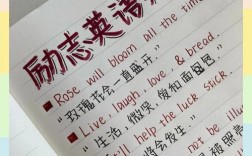 励志英语
Rose will bloom all the time
"玫瑰花会一直盛开"
Live, laugh, love & bread.
"生活,微笑,爱和面包
help the luck stick.
将会发生."
not be